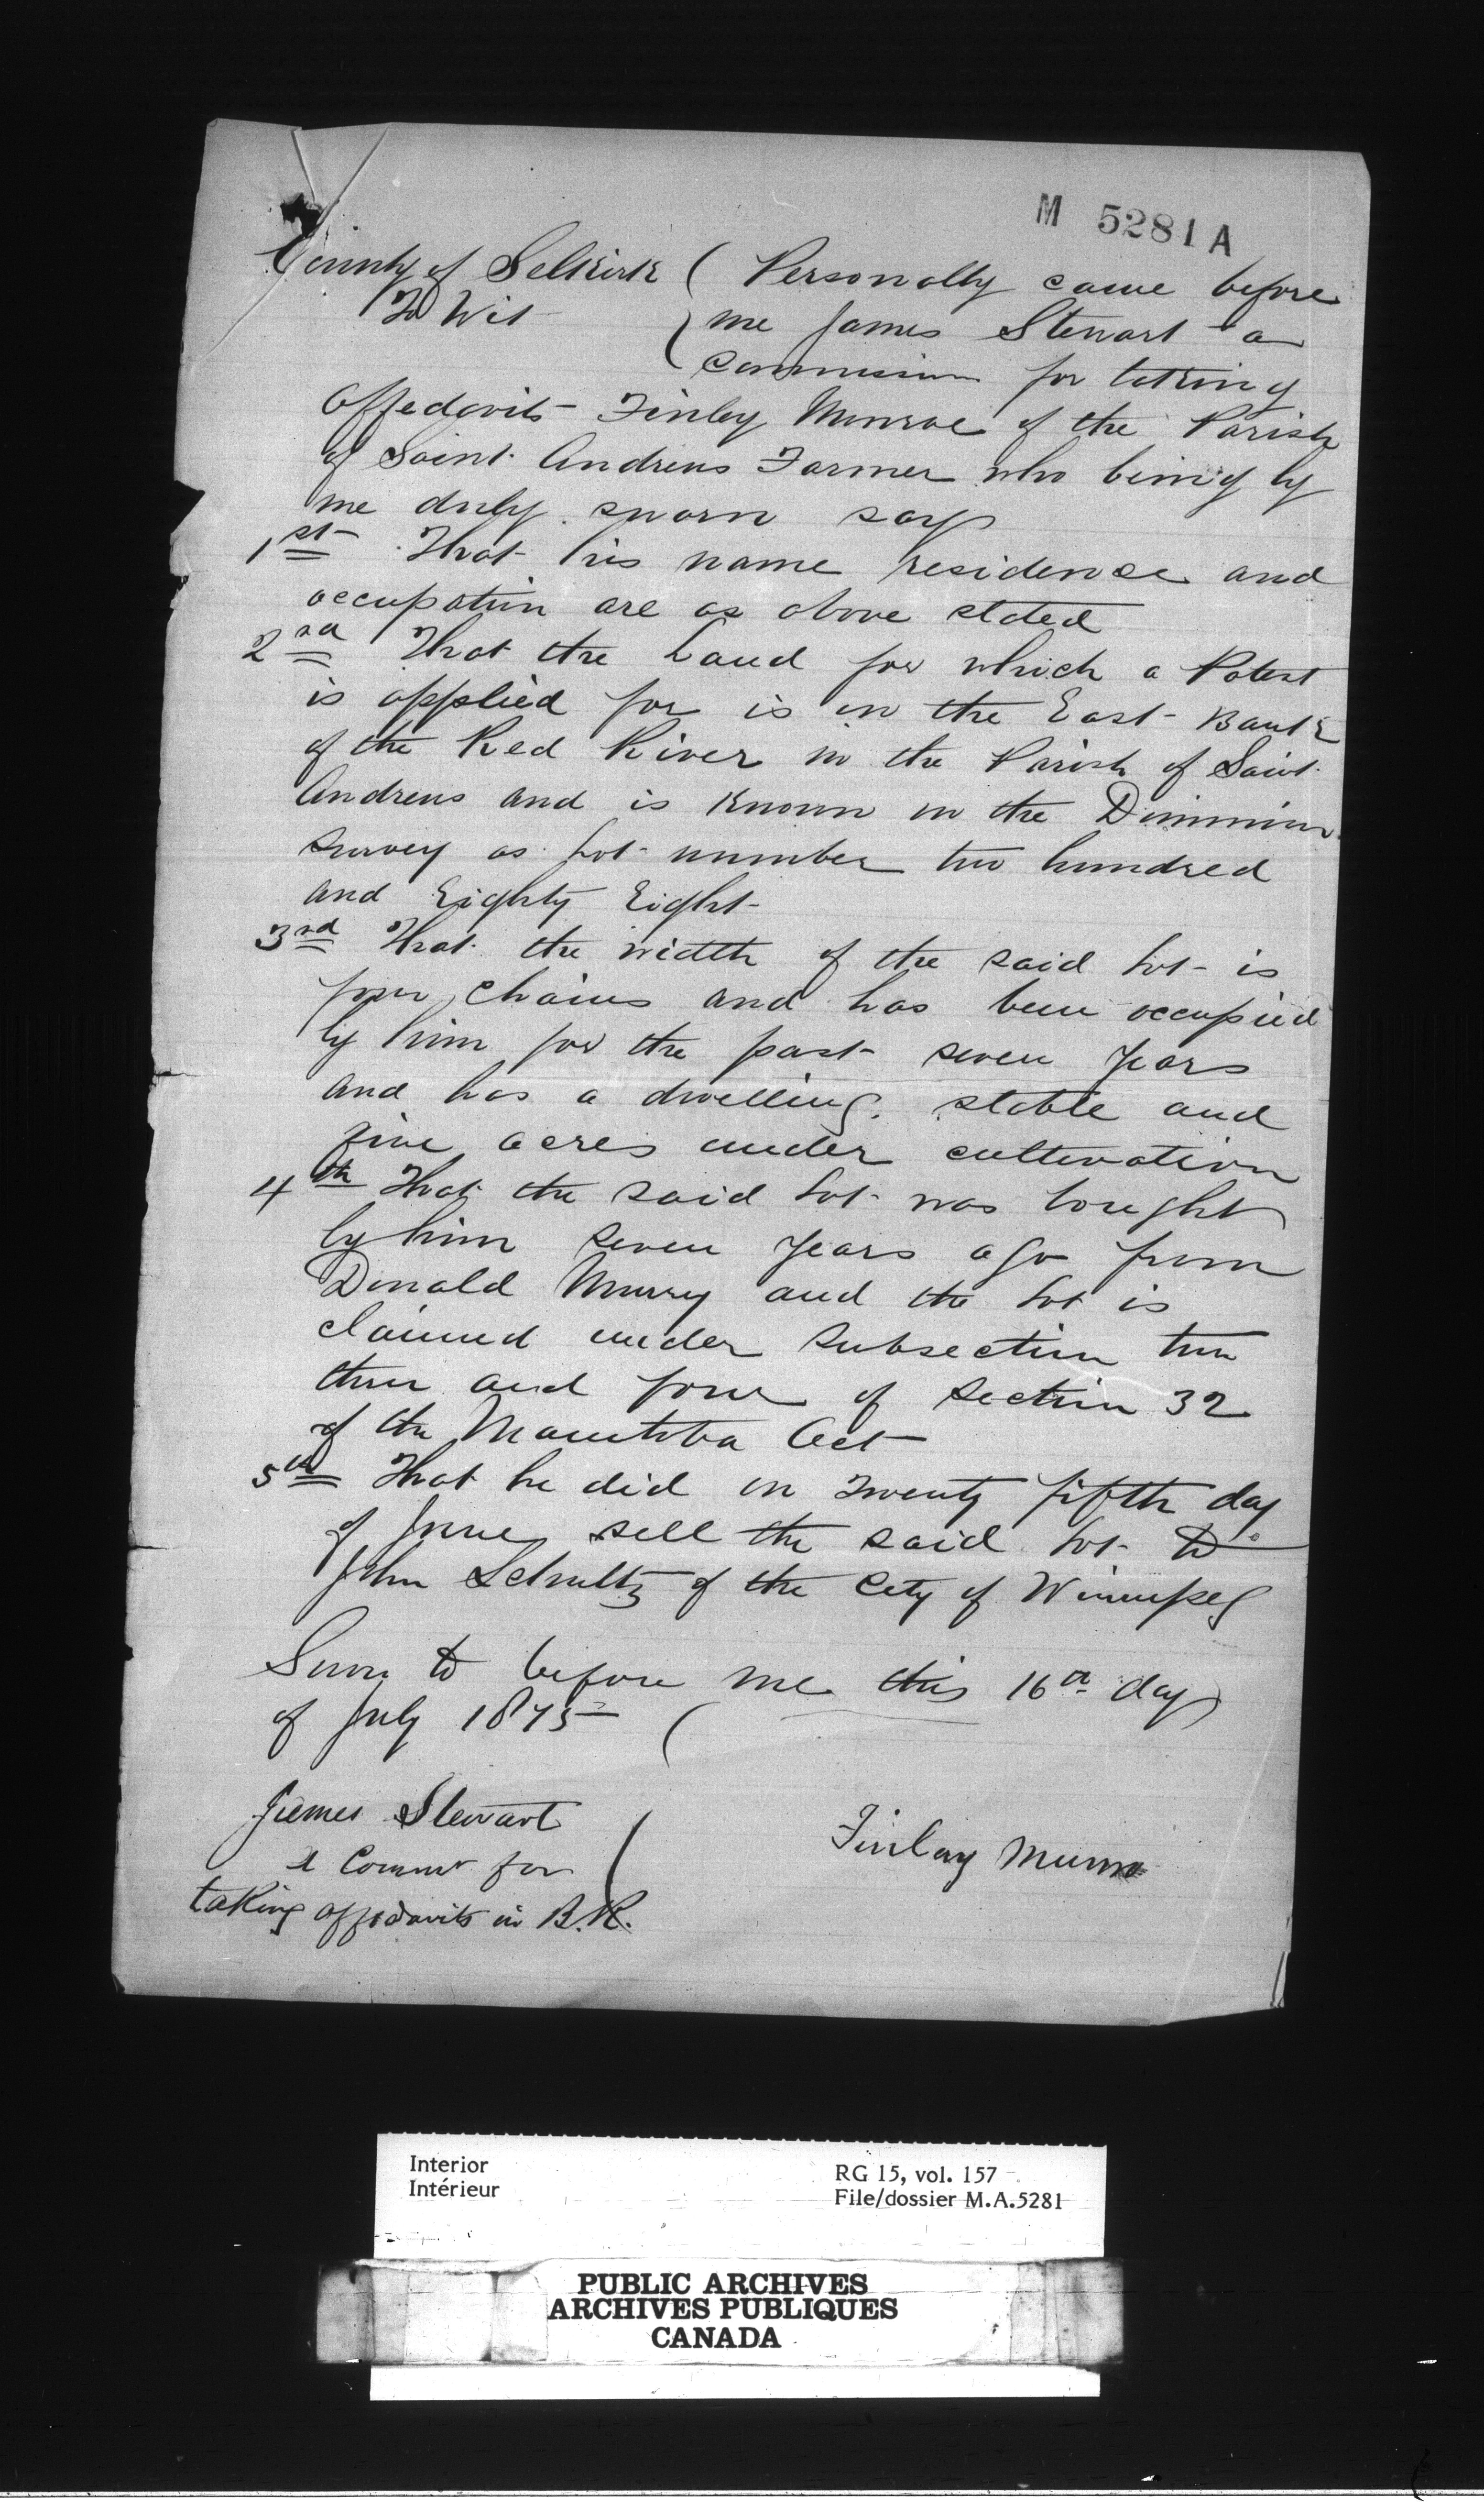 M 5281 A
County of Selkirk ( Personally came before
To Wit ) me James Stewart a
( for taking
affedavits Finley Monroe of the Parish
of Saint Andrews Farmer who being by
me duly sworn says
1st That his name residence and
occupation are as above stated
2nd That the Land for which a Patent
is applied for is on the East Bank
of the Red River in the Parish of Saint
Andrews and is Known in the Dominion
Survey as Lot number two hundred
and Eighty Eight
3rd That the width of the said Lot is
four chains and has been occupied
by him for the past seven years
and has a dwelling. stable and
five acres under cultivation
4th That the said Lot was bought
by him seven years ago from
Donald Murry and the Lot is
claimed under subsection two
three and four of section 32
of the Manitoba Act
5th That he did on Twenty fifth day
of June sell the said Lot to
John Schultz of the City of Winnipeg
Sworn to before me this 16th day
of July 1875 (
James Stewart
A Commr for
taking affidavits in B.R.
Finlay Munro
Interior
Intérieur
RG 15, vol. 157
File/dossier M.A.5281
PUBLIC ARCHIVES
ARCHIVES PUBLIQUES
CANADA